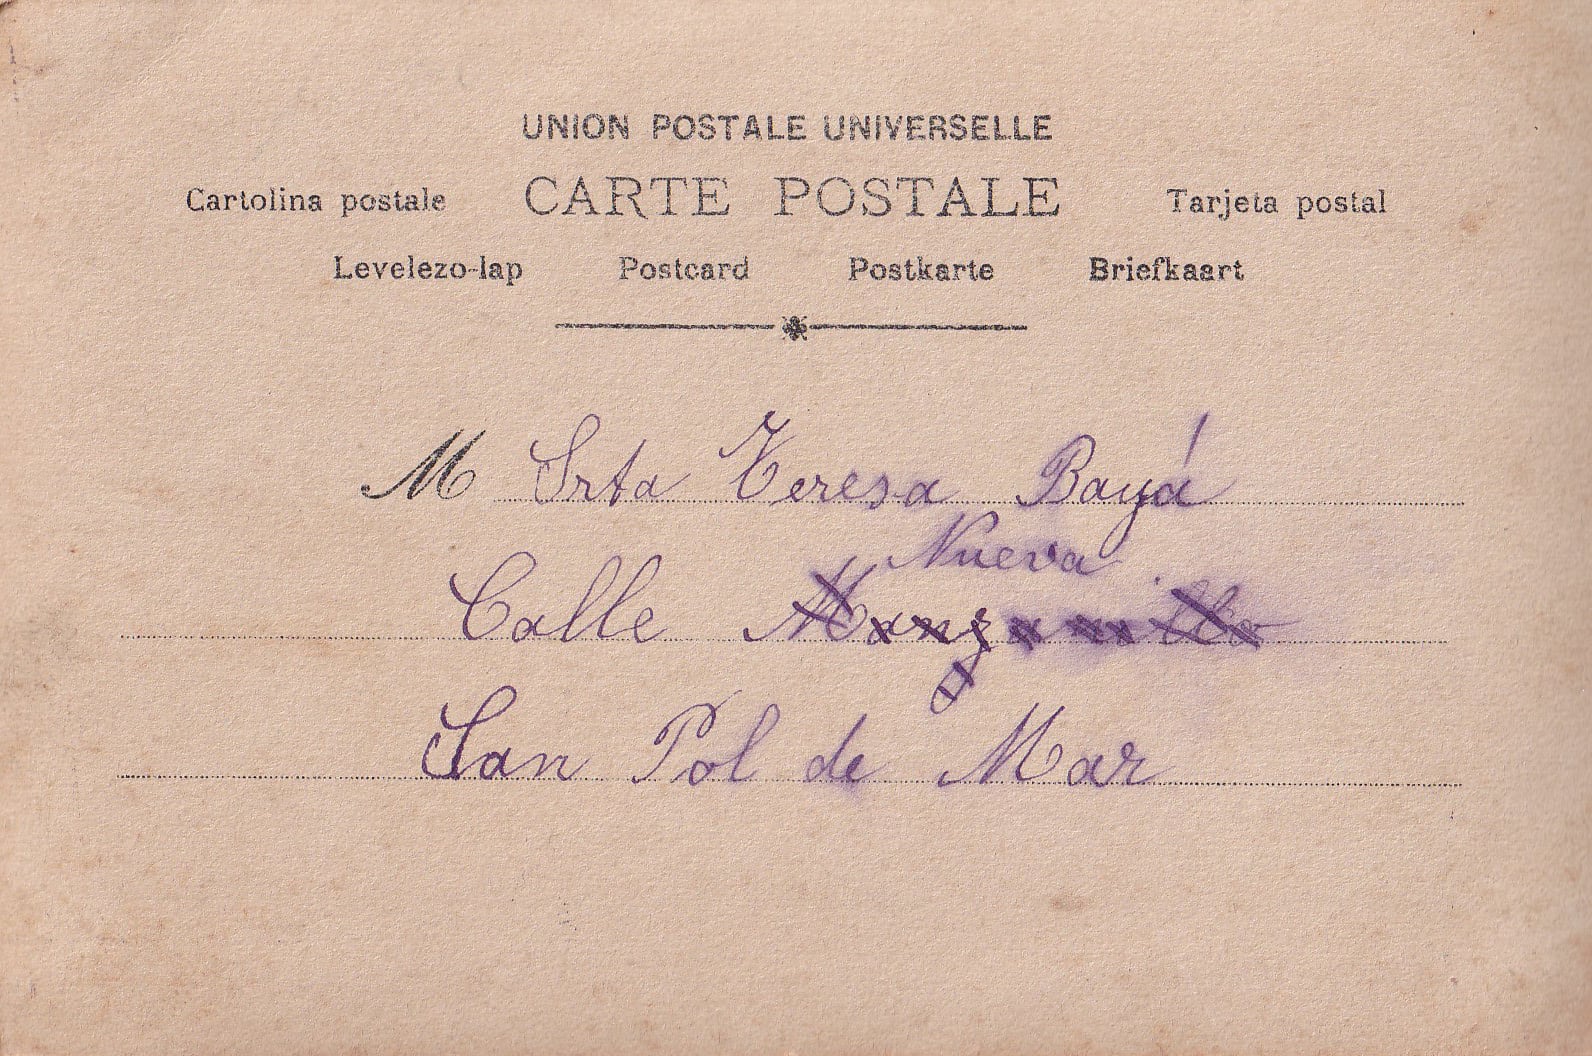 UNION POSTALE UNIVERSELLE
Cartolina postale CARTE POSTALE Tarjeta postal
Levelezo-lap Postcard Postkarte Briefkaart
M Srta Teresa Bayá
Nueva
Calle
San Pol de Mar